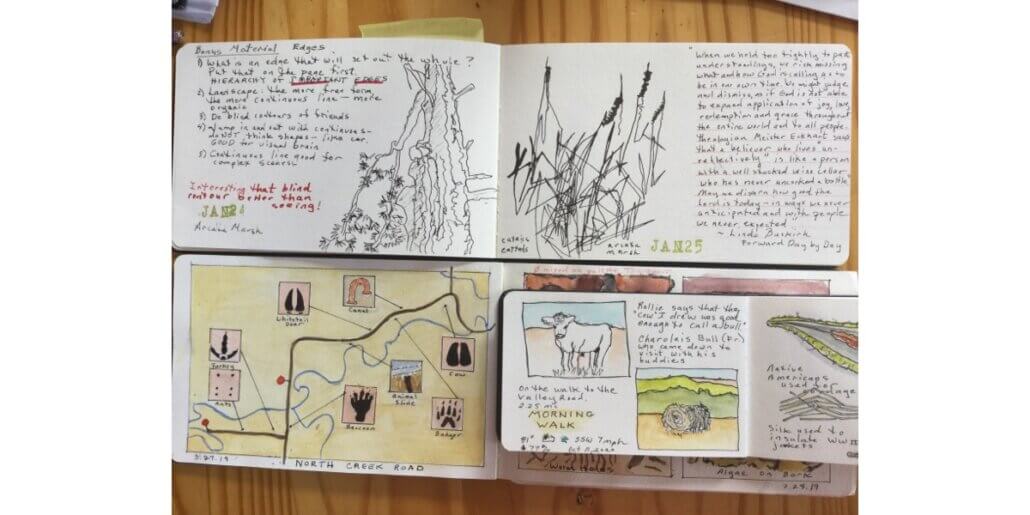 Bonus Material Edges
1) What is an edge that will set out the whole?
Put that on the page first
HIERARCHY of IMPORTANT EDGES
2) Landscape: the more free form,
the more continuous line — more
organic
3) Do blind contours of friends
4) Jump in and out with continuous-
do NOT think shapes - like car.
GOOD for visual brain
5) Continuous line good for
complex scenes
Interesting that blind
contour better than
seeing!
JAN24
Arcata Marsh
cattails
arcata
marsh
JAN25
"When we hold too tightly to past
understandings, we risk missing
what and how God is calling us to
be in our own time. We might judge
and dismiss, as if God is not able
to expand application of joy, love,
redemption and grace throughout
the entire world and to all people.
Theologian Meister Eckhart says
that a believer who lives "un-
reflectively" is like a person
with a well stocked wine cellar
who has never uncorked a bottle.
May we discern how good the
Lord is today - in ways we never
anticipated and with people
we never expected."
~ Linda Buskirk
Forward Day by Day
Whitetail
Deer
Turkey
Ants
Animal
Slide
Cow
Raccoon
Badger
3.27.19
NORTH CREEK ROAD
Mollie says that the
"cow I drew was good
enough to call a bull."
Charolais Bull (Fr)
who came down to
visit with his
buddies
On the walk to the
Valley Road.
2.25 mi
MORNING
WALK
81°
SSW 7mph
Native
Americans
used for
cordage
Silk used to
insulate WW II
jackets
Worm Holes
Algae on Bark